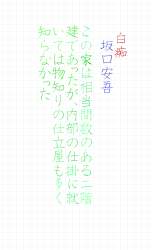 白痴
坂口安吾
この家は相当間数のある二階
建であったが、内部の仕掛に就
いては物知りの仕立屋も多く
知らなかった